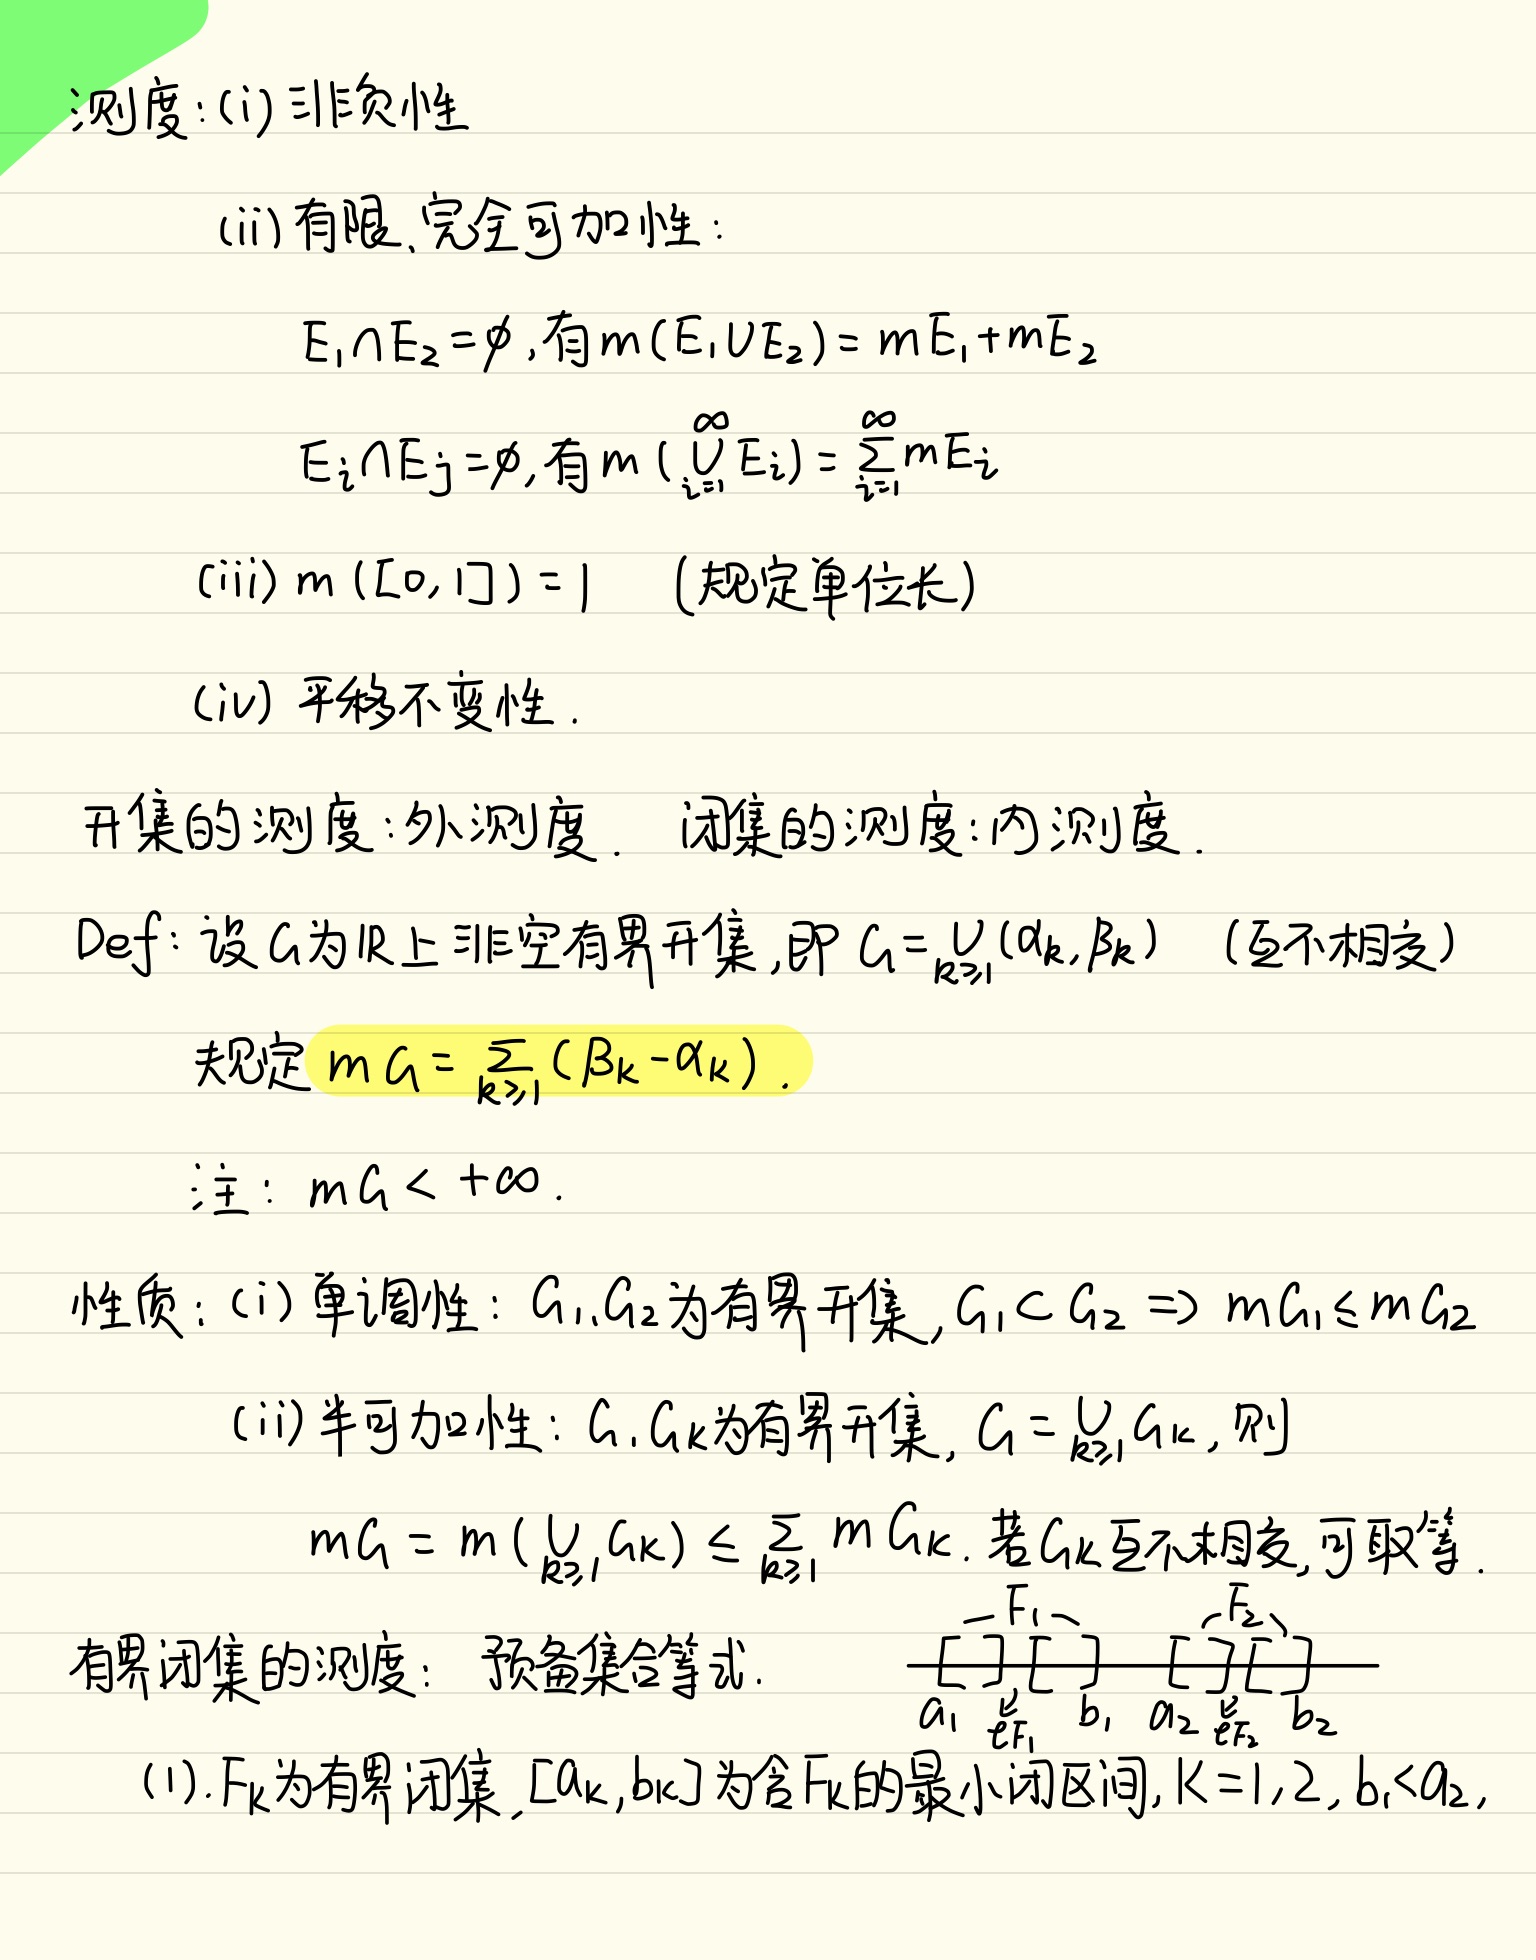 测度:(i) 非负性
(ii) 有限、完全可加性:
E₁∩E₂=∅,有m(E₁∪E₂)=mE₁+mE₂
Eᵢ∩Eⱼ=∅,有m(⋃_{i=1}^{∞}Eᵢ)=∑_{i=1}^{∞}mEᵢ
(iii) m([0,1])=1 (规定单位长)
(iv) 平移不变性.
开集的测度:外测度. 闭集的测度:内测度.
Def: 设G为ℝ上非空有界开集,即 G=⋃_{k≥1}(αₖ,βₖ) (互不相交)
规定 mG=∑_{k≥1}(βₖ-αₖ).
注: mG<+∞.
性质: (i) 单调性: G₁、G₂为有界开集,G₁⊂G₂ ⇒ mG₁≤mG₂
(ii) 半可加性: G、Gₖ为有界开集, G=⋃_{k≥1}Gₖ,则
mG=m(⋃_{k≥1}Gₖ)≤∑_{k≥1}mGₖ. 若Gₖ互不相交,可取等.
F₁ F₂
有界闭集的测度: 预备集合等式.
a₁ ∉F₁ b₁ a₂ ∉F₂ b₂
(1). Fₖ为有界闭集,[aₖ,bₖ]为含Fₖ的最小闭区间,K=1,2,b₁<a₂,